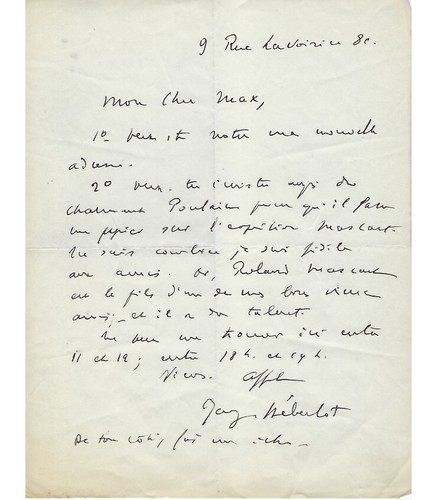 9 Rue Lavoisier 8e.
Mon Cher Max,
1º veux-tu noter ma nouvelle
adresse.
2º veux-tu insister auprès du
charmant Poulain pour qu'il fasse
un papier sur l'exposition Mascart.
Tu sais combien je suis fidèle
aux amis. Or, Roland Mascart
est le fils d'un de mes bons vieux
amis, et il a du talent.
Tu peux me trouver ici entre
11 et 12; entre 18 h. et 19 h.
Affec
Jacques Hébertot
De ton côté, fais un écho